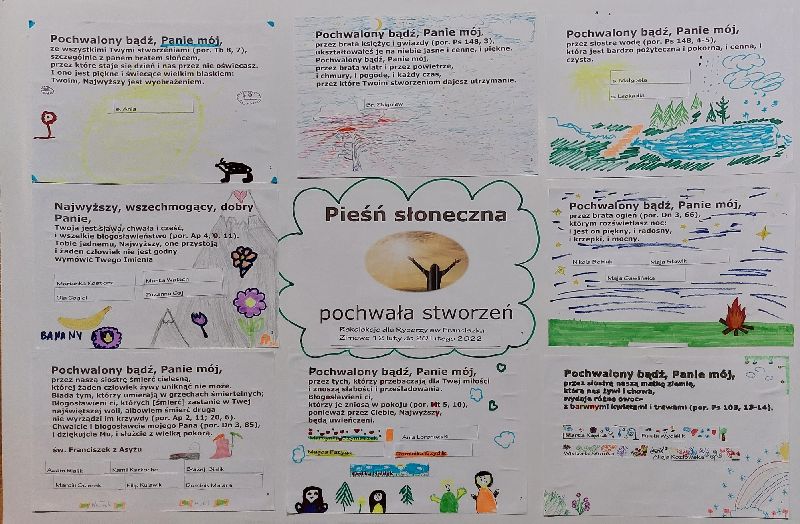 Pochwalony bądź, Panie mój,
ze wszystkimi Twymi stworzeniami (por. Tb 8, 7),
szczególnie z panem bratem słońcem,
przez które staje się dzień i nas przez nie oświecasz.
I ono jest piękne i świecące wielkim blaskiem:
Twoim, Najwyższy jest wyobrażeniem.
s. Ania
Pochwalony bądź, Panie mój,
przez brata księżyc i gwiazdy (por. Ps 148, 3),
ukształtowałeś je na niebie jasne i cenne, i piękne.
Pochwalony bądź, Panie mój,
przez brata wiatr i przez powietrze,
i chmury, i pogodę, i każdy czas,
przez które Twoim stworzeniom dajesz utrzymanie.
Br. Zbigniew
Pochwalony bądź, Panie mój,
przez siostrę wodę (por. Ps 148, 4-5),
która jest bardzo pożyteczna i pokorna, i cenna, i
czysta.
s. Małgosia
s. Leokadia
Najwyższy, wszechmogący, dobry
Panie,
Twoja jest sława, chwała i cześć,
i wszelkie błogosławieństwo (por. Ap 4, 9. 11).
Tobie jednemu, Najwyższy, one przystoją
i żaden człowiek nie jest godny
wymówić Twego Imienia
BANANY
Pieśń słoneczna
pochwała stworzeń
Rekolekcje dla Rycerzy św. Franciszka
Zimowe 2022
Pochwalony bądź, Panie mój,
przez brata ogień (por. Dn 3, 66),
którym rozświetlasz noc:
i jest on piękny, i radosny,
i krzepki, i mocny.
Nikola
Maja
Maja
Pochwalony bądź, Panie mój,
przez naszą siostrę śmierć cielesną,
której żaden człowiek żywy uniknąć nie może.
Biada tym, którzy umierają w grzechach śmiertelnych;
Błogosławieni ci, których [śmierć] zastanie w Twej
najświętszej woli, albowiem śmierć druga
nie wyrządzi im krzywdy (por. Ap 2, 11; 20, 6).
Chwalcie i błogosławcie mojego Pana (por. Dn 3, 85),
i dziękujcie Mu, i służcie z wielką pokorą.
św. Franciszek z Asyżu
Kamil
Marcin
Filip
Pochwalony bądź, Panie mój,
przez tych, którzy przebaczają dla Twej miłości
i znoszą słabości i prześladowania.
Błogosławieni ci,
którzy je zniosą w pokoju (por. Mt 5, 10),
ponieważ przez Ciebie, Najwyższy,
będą uwieńczeni.
Ania
Dominika
Pochwalony bądź, Panie mój,
przez siostrę naszą matkę ziemię,
która nas żywi i chowa,
wydaje różne owoce
z barwnymi kwiatami i trawami (por. Ps 103, 13-14).
Alicja Kozłowska